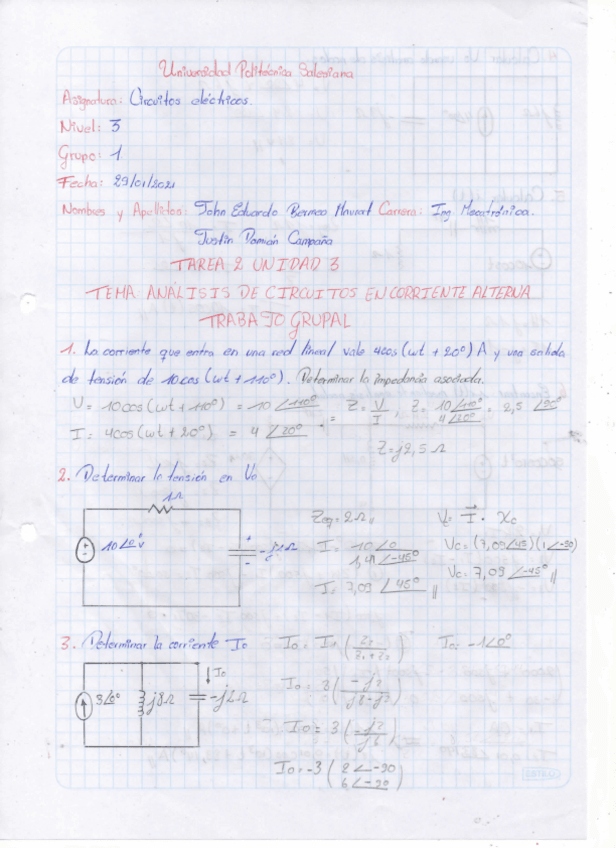 Universidad Politécnica Salesiana
Asignatura: Circuitos eléctricos.
Nivel: 3
Grupo: 1
Fecha: 29/01/2021
Nombres y Apellidos: John Eduardo Bermeo Carrera: Ing Mecatrónica.
Justin Damián Campaña
TAREA 2 UNIDAD 3
TEMA ANÁLISIS DE CIRCUITOS EN CORRIENTE ALTERNA
TRABAJO GRUPAL
1. La corriente que entra en una red lineal vale 4cos(ωt + 20°) A y una salida
de tensión de 10cos(ωt + 110°). Determinar la impedancia asociada.
V = 10cos(ωt + 110°) = 10 ∠110° = Z = V/I , Z = 10∠110° / 4∠20° = 2,5 ∠90°
I = 4cos(ωt + 20°) = 4 ∠20°
Z = j2,5 Ω
2. Determinar la tensión en Vo
1Ω
10∠0° V
Zeq = 2Ω
I = 10∠0 / 1,41∠-45°
I = 7,09 ∠45°
Vc = I · Xc
Vc = (7,09∠45)(1∠-90)
Vc = 7,09 ∠-45°
3. Determinar la corriente Io
3∠0° j8Ω -j2Ω
Io
Io = -1∠0°
Io = 3(-j2 / j6)
Io = -3(2∠-90 / 6∠-90)